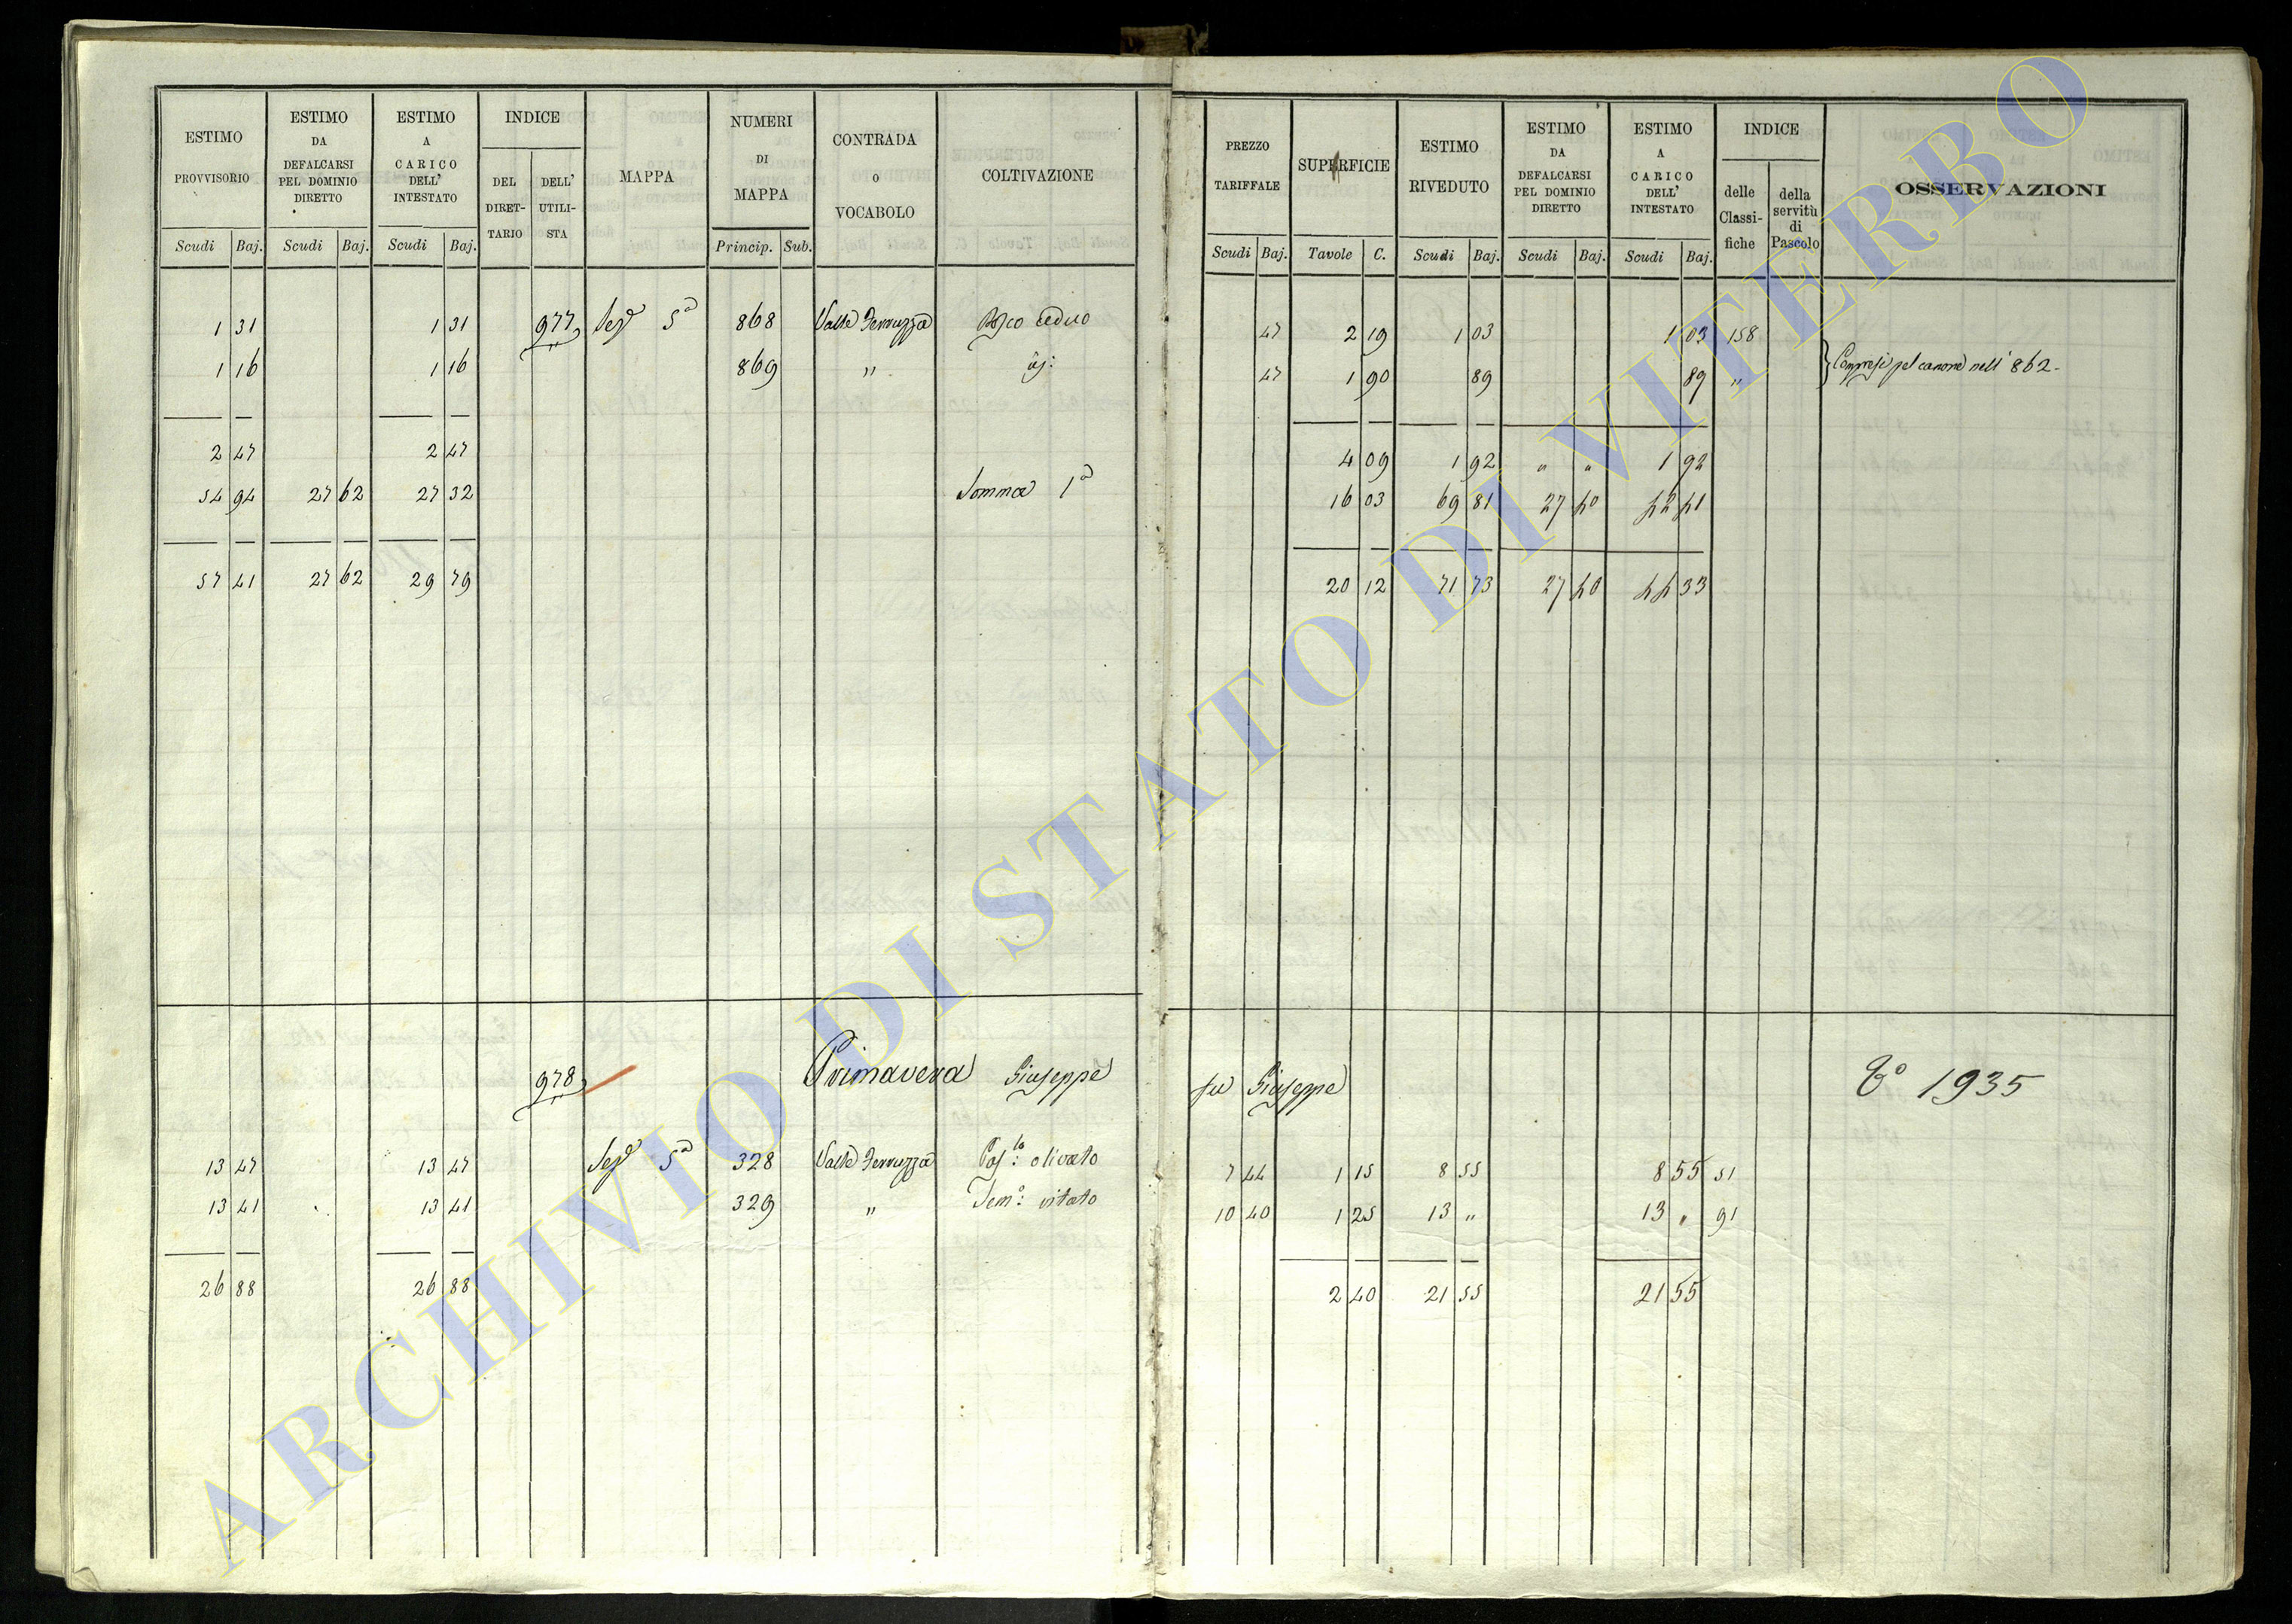 ESTIMO PROVVISORIO
Scudi Baj.
ESTIMO DA DEFALCARSI PEL DOMINIO DIRETTO
Scudi Baj.
ESTIMO A CARICO DELL' INTESTATO
Scudi Baj.
INDICE
DEL DIRET-TARIO
DELL' UTILI-STA
MAPPA
NUMERI DI MAPPA
Princip. Sub.
CONTRADA O VOCABOLO
COLTIVAZIONE
PREZZO TARIFFALE
Scudi Baj.
SUPERFICIE
Tavole C.
ESTIMO RIVEDUTO
Scudi Baj.
ESTIMO DA DEFALCARSI PEL DOMINIO DIRETTO
Scudi Baj.
ESTIMO A CARICO DELL' INTESTATO
Scudi Baj.
INDICE
delle Classi-fiche
della servitù di Pascolo
OSSERVAZIONI
1 31 1 31 977 Sez.e 5a 868 Valle Perruzza Bosco ceduo 47 2 19 1 03 1 03 158
1 16 1 16 869 " 47 1 90 89 89 "
Compresi pel canone nell' 862.
2 47 2 47 4 09 1 92 " " 1 92
54 94 27 62 27 32 Somma 1a 16 03 69 81 27 40 42 41
57 41 27 62 29 79 20 12 71 73 27 40 44 33
978 Primavera Giuseppe fu Giuseppe
1935
13 47 13 47 Sez.e 5a 328 Valle Perruzza Pas.lo: olivato 7 44 1 15 8 55 8 55 51
13 41 13 41 329 " Sem.o: vitato 10 40 1 25 13 " 13 " 91
26 88 26 88 2 40 21 55 21 55
ARCHIVIO DI STATO DI VITERBO